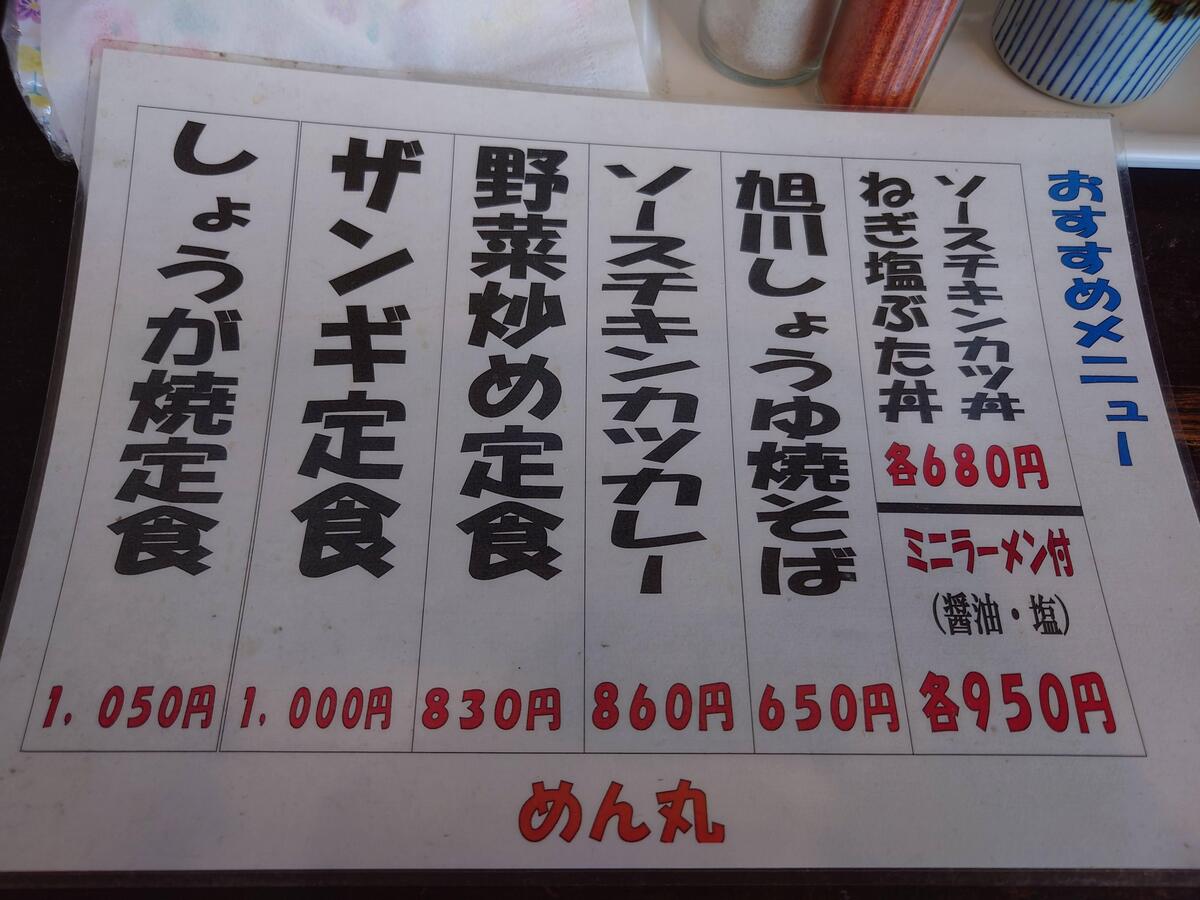 おすすめメニュー
ソースチキンカツ丼
ねぎ塩ぶた丼
各680円
ミニラーメン付
(醤油・塩)
各950円
旭川しょうゆ焼そば
650円
ソースチキンカツカレー
860円
野菜炒め定食
830円
ザンギ定食
1,000円
しょうが焼定食
1,050円
めん丸